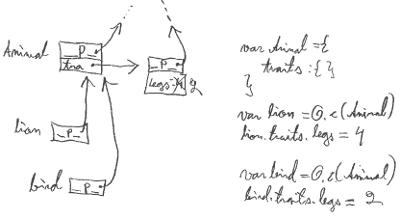 Animal
_P_
tra
_P_
legs: 4 2
lion
_P_
bird
_P_
var Animal = {
traits: { }
}
var lion = O.c(Animal)
lion.traits.legs = 4
var bird = O.c(Animal)
bird.traits.legs = 2